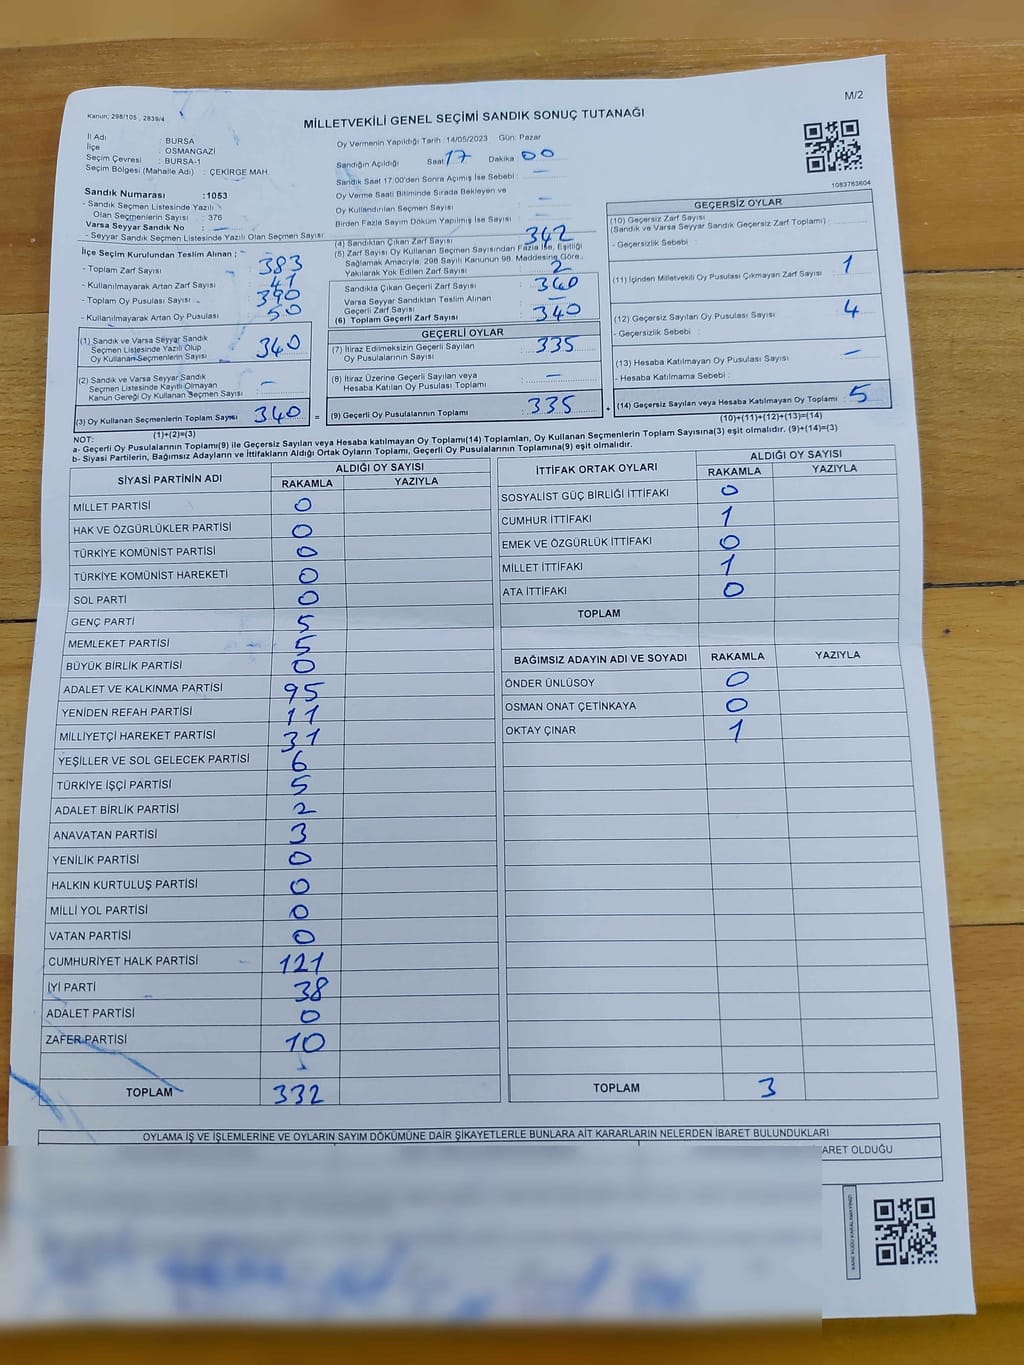 M/2
Kanun; 298/105 , 2839/4
MİLLETVEKİLİ GENEL SEÇİMİ SANDIK SONUÇ TUTANAĞI
İl Adı : BURSA
İlçe : OSMANGAZİ
Seçim Çevresi : BURSA-1
Seçim Bölgesi (Mahalle Adı) : ÇEKİRGE MAH.
Sandık Numarası :1053
- Sandık Seçmen Listesinde Yazılı
Olan Seçmenlerin Sayısı : 376
Varsa Seyyar Sandık No : —
- Seyyar Sandık Seçmen Listesinde Yazılı Olan Seçmen Sayısı:
Oy Vermenin Yapıldığı Tarih : 14/05/2023 Gün: Pazar
Sandığın Açıldığı Saat 17 Dakika : 00
Sandık Saat 17.00'den Sonra Açımış İse Sebebi : —
Oy Verme Saati Bitiminde Sırada Bekleyen ve
Oy Kullandırılan Seçmen Sayısı —
Birden Fazla Sayım Döküm Yapılmış İse Sayısı —
1083763604
İlçe Seçim Kurulundan Teslim Alınan ;
- Toplam Zarf Sayısı : 383
- Kullanılmayarak Artan Zarf Sayısı : 41
- Toplam Oy Pusulası Sayısı : 390
- Kullanılmayarak Artan Oy Pusulası : 50
(1) Sandık ve Varsa Seyyar Sandık
Seçmen Listesinde Yazılı Olup
Oy Kullanan Seçmenlerin Sayısı 340
(2) Sandık ve Varsa Seyyar Sandık
Seçmen Listesinde Kayıtlı Olmayan
Kanun Gereği Oy Kullanan Seçmen Sayısı —
(3) Oy Kullanan Seçmenlerin Toplam Sayısı 340 =
(1)+(2)=(3)
(4) Sandıktan Çıkan Zarf Sayısı : 342
(5) Zarf Sayısı Oy Kullanan Seçmen Sayısından Fazla İse, Eşitliği
Sağlamak Amacıyla, 298 Sayılı Kanunun 98. Maddesine Göre
Yakılarak Yok Edilen Zarf Sayısı : 2
Sandıkta Çıkan Geçerli Zarf Sayısı : 340
Varsa Seyyar Sandıktan Teslim Alınan
Geçerli Zarf Sayısı : —
(6) Toplam Geçerli Zarf Sayısı : 340
GEÇERLİ OYLAR
(7) İtiraz Edilmeksizin Geçerli Sayılan
Oy Pusulalarının Sayısı 335
(8) İtiraz Üzerine Geçerli Sayılan veya
Hesaba Katılan Oy Pusulası Toplamı —
(9) Geçerli Oy Pusulalarının Toplamı 335 +
GEÇERSİZ OYLAR
(10) Geçersiz Zarf Sayısı
(Sandık ve Varsa Seyyar Sandık Geçersiz Zarf Toplamı) :
- Geçersizlik Sebebi :
(11) İçinden Milletvekili Oy Pusulası Çıkmayan Zarf Sayısı : 1
(12) Geçersiz Sayılan Oy Pusulası Sayısı : 4
- Geçersizlik Sebebi :
(13) Hesaba Katılmayan Oy Pusulası Sayısı : —
- Hesaba Katılmama Sebebi :
(14) Geçersiz Sayılan veya Hesaba Katılmayan Oy Toplamı : 5
(10)+(11)+(12)+(13)=(14)
NOT:
a- Geçerli Oy Pusulalarının Toplamı(9) ile Geçersiz Sayılan veya Hesaba Katılmayan Oy Toplamı(14) Toplamları, Oy Kullanan Seçmenlerin Toplam Sayısına(3) eşit olmalıdır. (9)+(14)=(3)
b- Siyasi Partilerin, Bağımsız Adayların ve İttifakların Aldığı Ortak Oyların Toplamı, Geçerli Oy Pusulalarının Toplamına(9) eşit olmalıdır.
SİYASİ PARTİNİN ADI ALDIĞI OY SAYISI
RAKAMLA YAZIYLA
MİLLET PARTİSİ 0
HAK VE ÖZGÜRLÜKLER PARTİSİ 0
TÜRKİYE KOMÜNİST PARTİSİ 0
TÜRKİYE KOMÜNİST HAREKETİ 0
SOL PARTİ 0
GENÇ PARTİ 5
MEMLEKET PARTİSİ 5
BÜYÜK BİRLİK PARTİSİ 0
ADALET VE KALKINMA PARTİSİ 95
YENİDEN REFAH PARTİSİ 11
MİLLİYETÇİ HAREKET PARTİSİ 31
YEŞİLLER VE SOL GELECEK PARTİSİ 6
TÜRKİYE İŞÇİ PARTİSİ 5
ADALET BİRLİK PARTİSİ 2
ANAVATAN PARTİSİ 3
YENİLİK PARTİSİ 0
HALKIN KURTULUŞ PARTİSİ 0
MİLLİ YOL PARTİSİ 0
VATAN PARTİSİ 0
CUMHURİYET HALK PARTİSİ 121
İYİ PARTİ 38
ADALET PARTİSİ 0
ZAFER PARTİSİ 10
TOPLAM 332
İTTİFAK ORTAK OYLARI ALDIĞI OY SAYISI
RAKAMLA YAZIYLA
SOSYALİST GÜÇ BİRLİĞİ İTTİFAKI 0
CUMHUR İTTİFAKI 1
EMEK VE ÖZGÜRLÜK İTTİFAKI 0
MİLLET İTTİFAKI 1
ATA İTTİFAKI 0
TOPLAM
BAĞIMSIZ ADAYIN ADI VE SOYADI RAKAMLA YAZIYLA
ÖNDER ÜNLÜSOY 0
OSMAN ONAT ÇETİNKAYA 0
OKTAY ÇINAR 1
TOPLAM 3
OYLAMA İŞ VE İŞLEMLERİNE VE OYLARIN SAYIM DÖKÜMÜNE DAİR ŞİKAYETLERLE BUNLARA AİT KARARLARIN NELERDEN İBARET BULUNDUKLARI
ARET OLDUĞU
KARE KODU KARALAMAYINIZ!